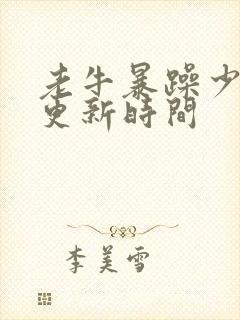 老牛暴躁少
更新時間
李美雪